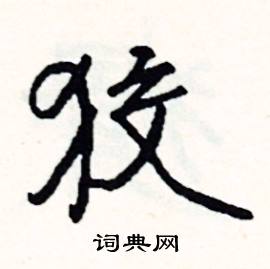 狡
词典网